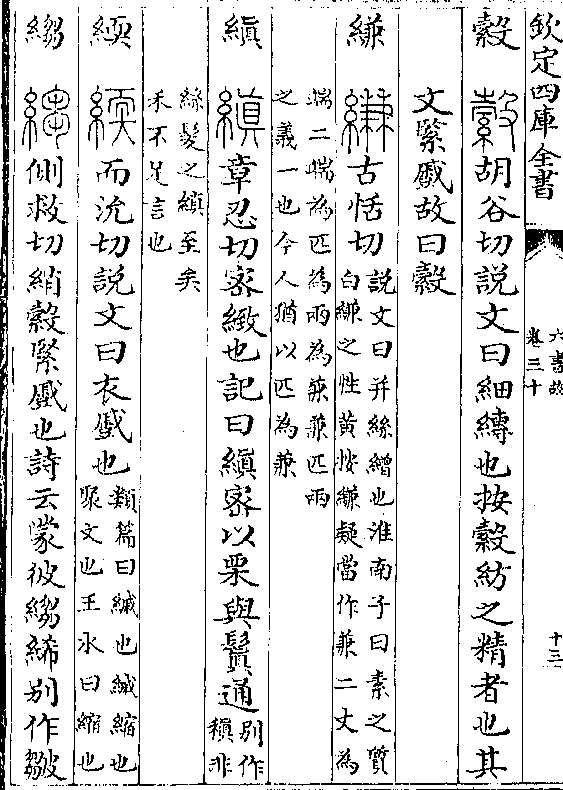 欽定四庫全書
六書故
卷三十
十三
縠 縠胡谷切説文曰細縳也按縠紡之精者也其
文緊蹙故曰縠
縑 縑古恬切
説文曰并絲繒也淮南子曰素之質
白縑之性黄按縑疑當作兼二丈為
端二端為匹為兩為兼兼匹兩
之義一也今人猶以匹為兼
縝 縝章忍切密緻也記曰縝密以栗與鬒通
别作
稹非
絲髮之縝至矣
禾不足言也
緛 緛而沇切説文曰衣蹙也
類篇曰緘也緘縮也
聚文也王氷曰縮也
縐 縐側救切綃縠緊蹙也詩云蒙彼縐絺别作皺